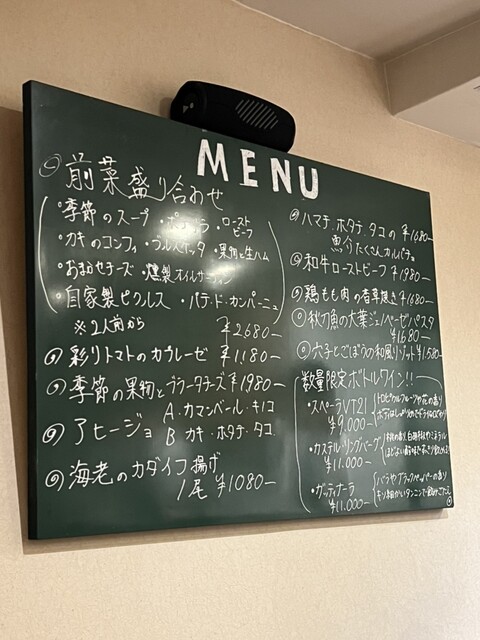 MENU
前菜盛り合わせ
・季節のスープ ・ロースト
ビーフ
・カキのコンフィ ・ブルスケッタ ・果物と生ハム
・おまかせチーズ ・燻製オイルサーディン
・自家製ピクルス ・パテ・ド・カンパーニュ
※2人前から ¥2680-
彩りトマトのカプレーゼ ¥1180-
季節の果物とブラータチーズ ¥1980-
アヒージョ A.カマンベール・キノコ
B カキ・ホタテ・タコ
海老のカダイフ揚げ
1尾 ¥1080-
ハマチ、ホタテ、タコの ¥1680-
魚介たくさんカルパッチョ
和牛ローストビーフ ¥1980-
鶏もも肉の香草焼き ¥1680-
秋刀魚の大葉ジェノベーゼパスタ
¥1680-
穴子とごぼうの和風リゾット ¥1580-
数量限定ボトルワイン!!
・スペーラVT21
¥9,000-
・カステル・リングバーグ
¥11,000-
・ガッティナーラ
¥11.000-